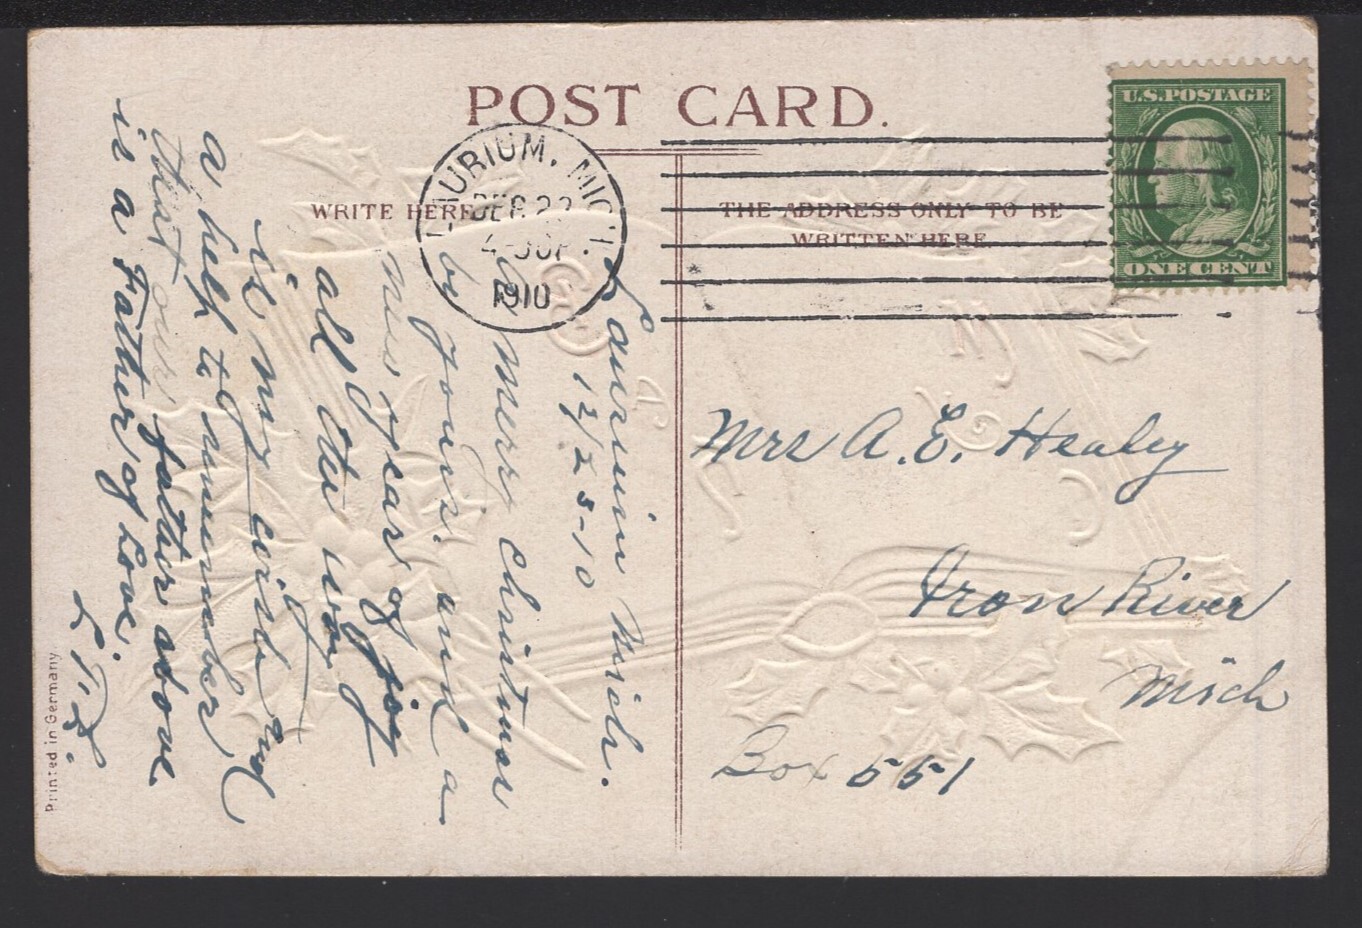 POST CARD.
WRITE HERE
THE ADDRESS ONLY TO BE
WRITTEN HERE
U.S. POSTAGE
ONE CENT
LAURIUM, MICH.
DEC 22
4-30 P
1910
Laurium Mich.
12/23-10
A Merry Christmas
be yours. and a
new year of joy
all the way
is my wish and
a help to remember
that our father above
is a Father of Love.
Mrs A. E. Healey
Iron River
Mich
Box 551
Printed in Germany